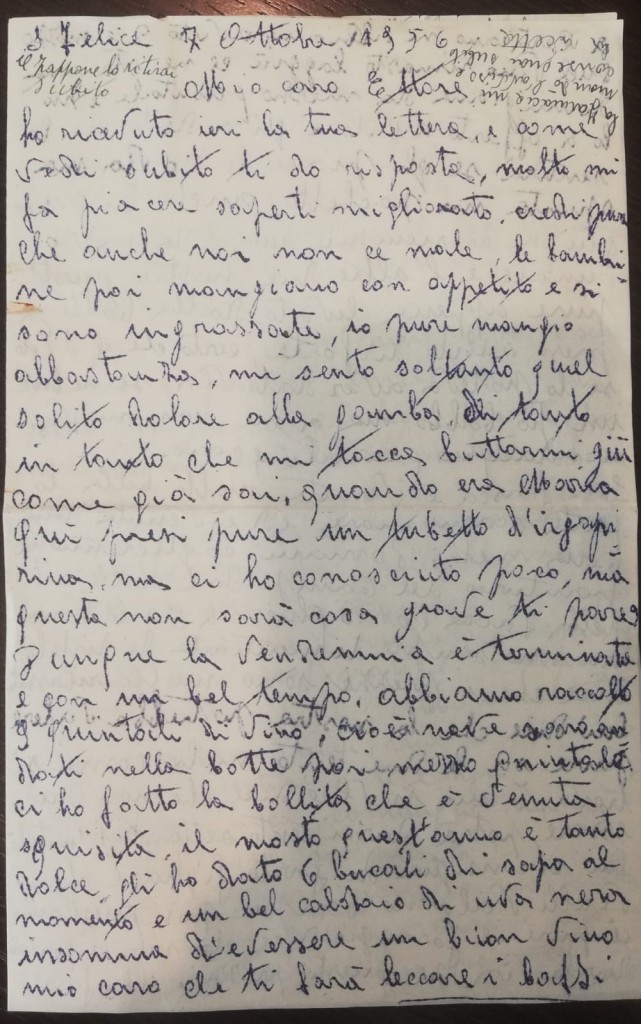 S Felice 7 Ottobre 1956
le Zappone lo ritirai
subito
la farmacia mi
mandò l'
ricetta
Mio caro Ettore
ho ricevuto ieri la tua lettera, e come
vedi subito ti do risposta, molto mi
fa piacere saperti migliorato, credi pure
che anche noi non ce male, le bambi-
ne poi mangiano con appetito e si
sono ingrassate, io pure mangio
abbastanza, mi sento soltanto quel
solito dolore alla gamba, di tanto
in tanto che mi tocca buttarmi giù
come già sai, quando era Maria
quì presi pure un tubetto d'irgapi
rina, ma ci ho conosciuto poco, mà
questa non sarà cosa grave ti pare?
Dunque la vendemmia è terminata
e con un bel tempo, abbiamo raccolto
9 quintali di vino, cioè nove sono an
dati nella botte poi mezzo quintale
ci ho fatto la bollita che è venuta
squisita, il mosto quest'anno è tanto
dolce, gli ho dato 6 bucali di sapa al
momento e un bel caldaio di uva nera
insomma d'evessere un buon vino
mio caro che ti farà leccare i baffi